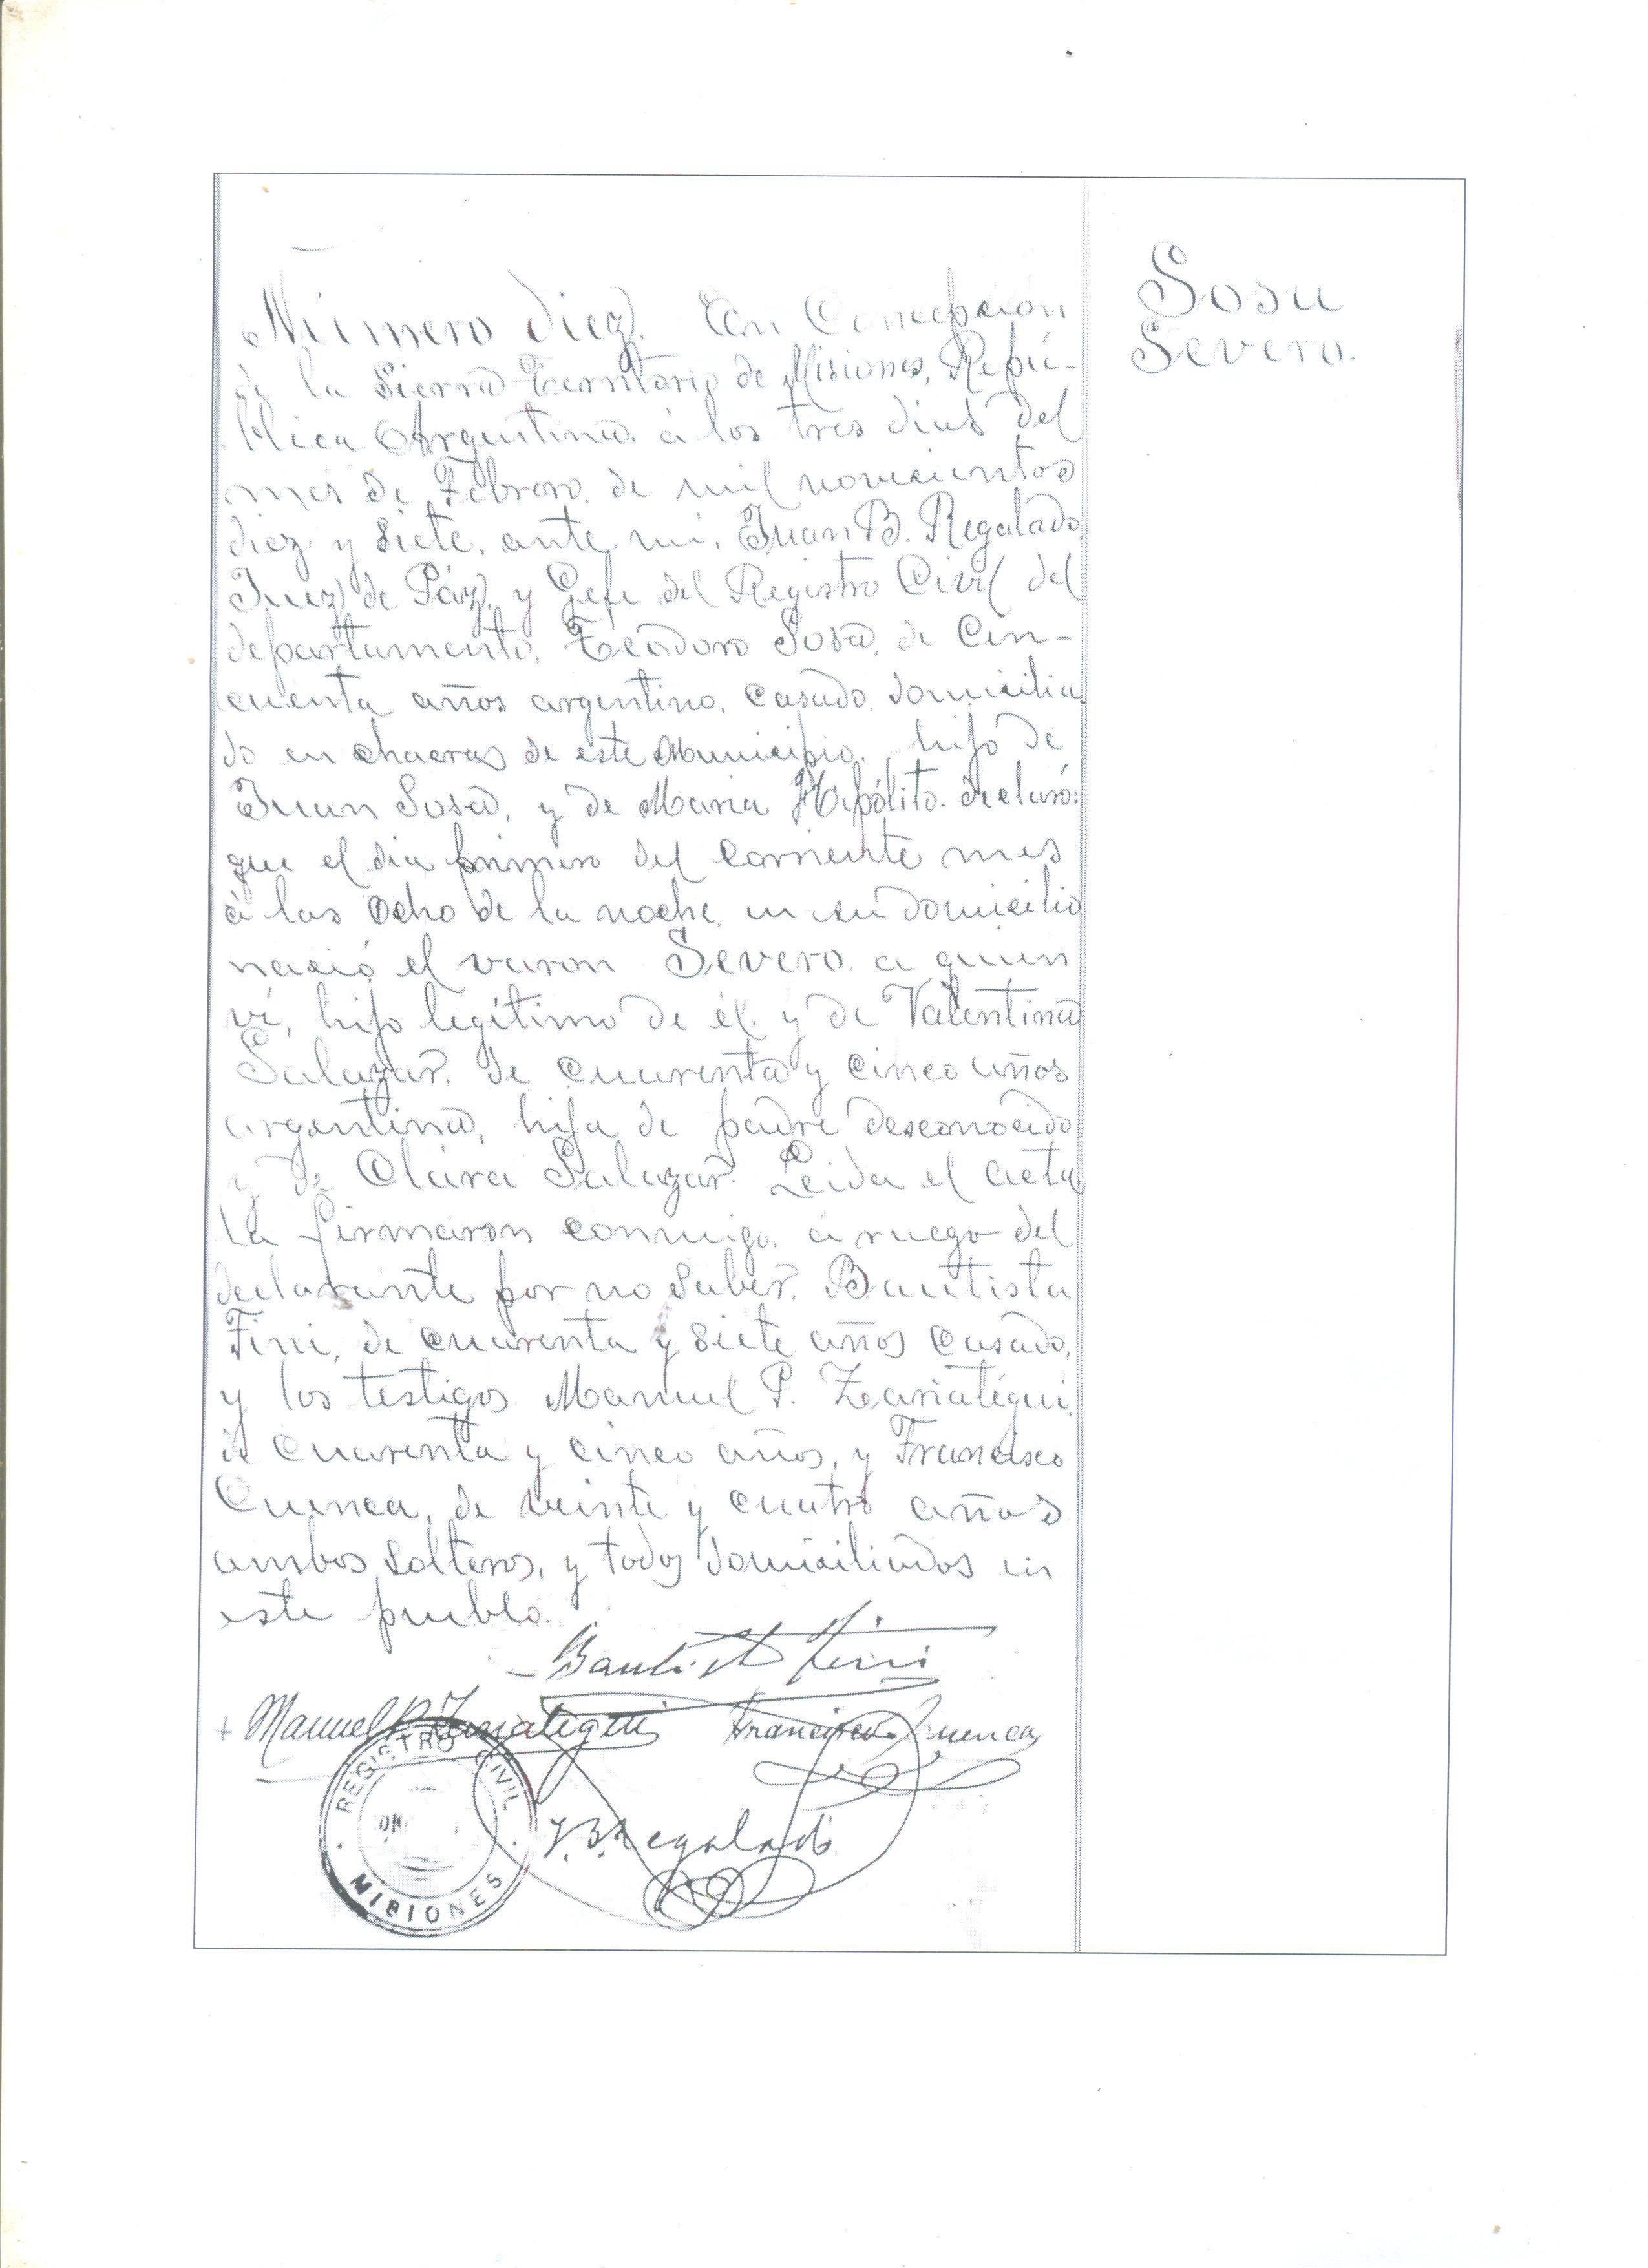 Número diez. En Concepción
de la Sierra Territorio de Misiones, Repú-
blica Argentina. á los tres dias del
mes de Febrero. de mil novecientos
diez y siete. ante mi, Juan B. Regalado,
Juez de Páz, y Gefe del Registro Civil del
departamento. Teodoro Sosa, de Cin-
cuenta años argentino. Casado. domicilia
do en chacras de este Municipio. hijo de
Juan Sosa, y de Maria Hipólito. declaró:
que el dia primero del corriente mes
á las ocho de la noche, en su domicilio
nació el varon Severo. a quien
ví, hijo legítimo de él. y de Valentina
Salazar. de cuarenta y cinco años
argentina, hija de padre desconocido
y de Clara Salazar. Leida el acta
la firmaron conmigo. á ruego del
declarante por no saber. Bautista
Fini, de cuarenta y siete años casado,
y los testigos Manuel P. Zariategui,
de cuarenta y cinco años, y Francisco
Cuenca, de veinte y cuatro años
ambos solteros, y todos domiciliados en
este pueblo.
Bautista Fini
Manuel P. Zariategui Francisco Cuenca
J. B. Regalado
REGISTRO CIVIL
MISIONES
Sosa
Severo.